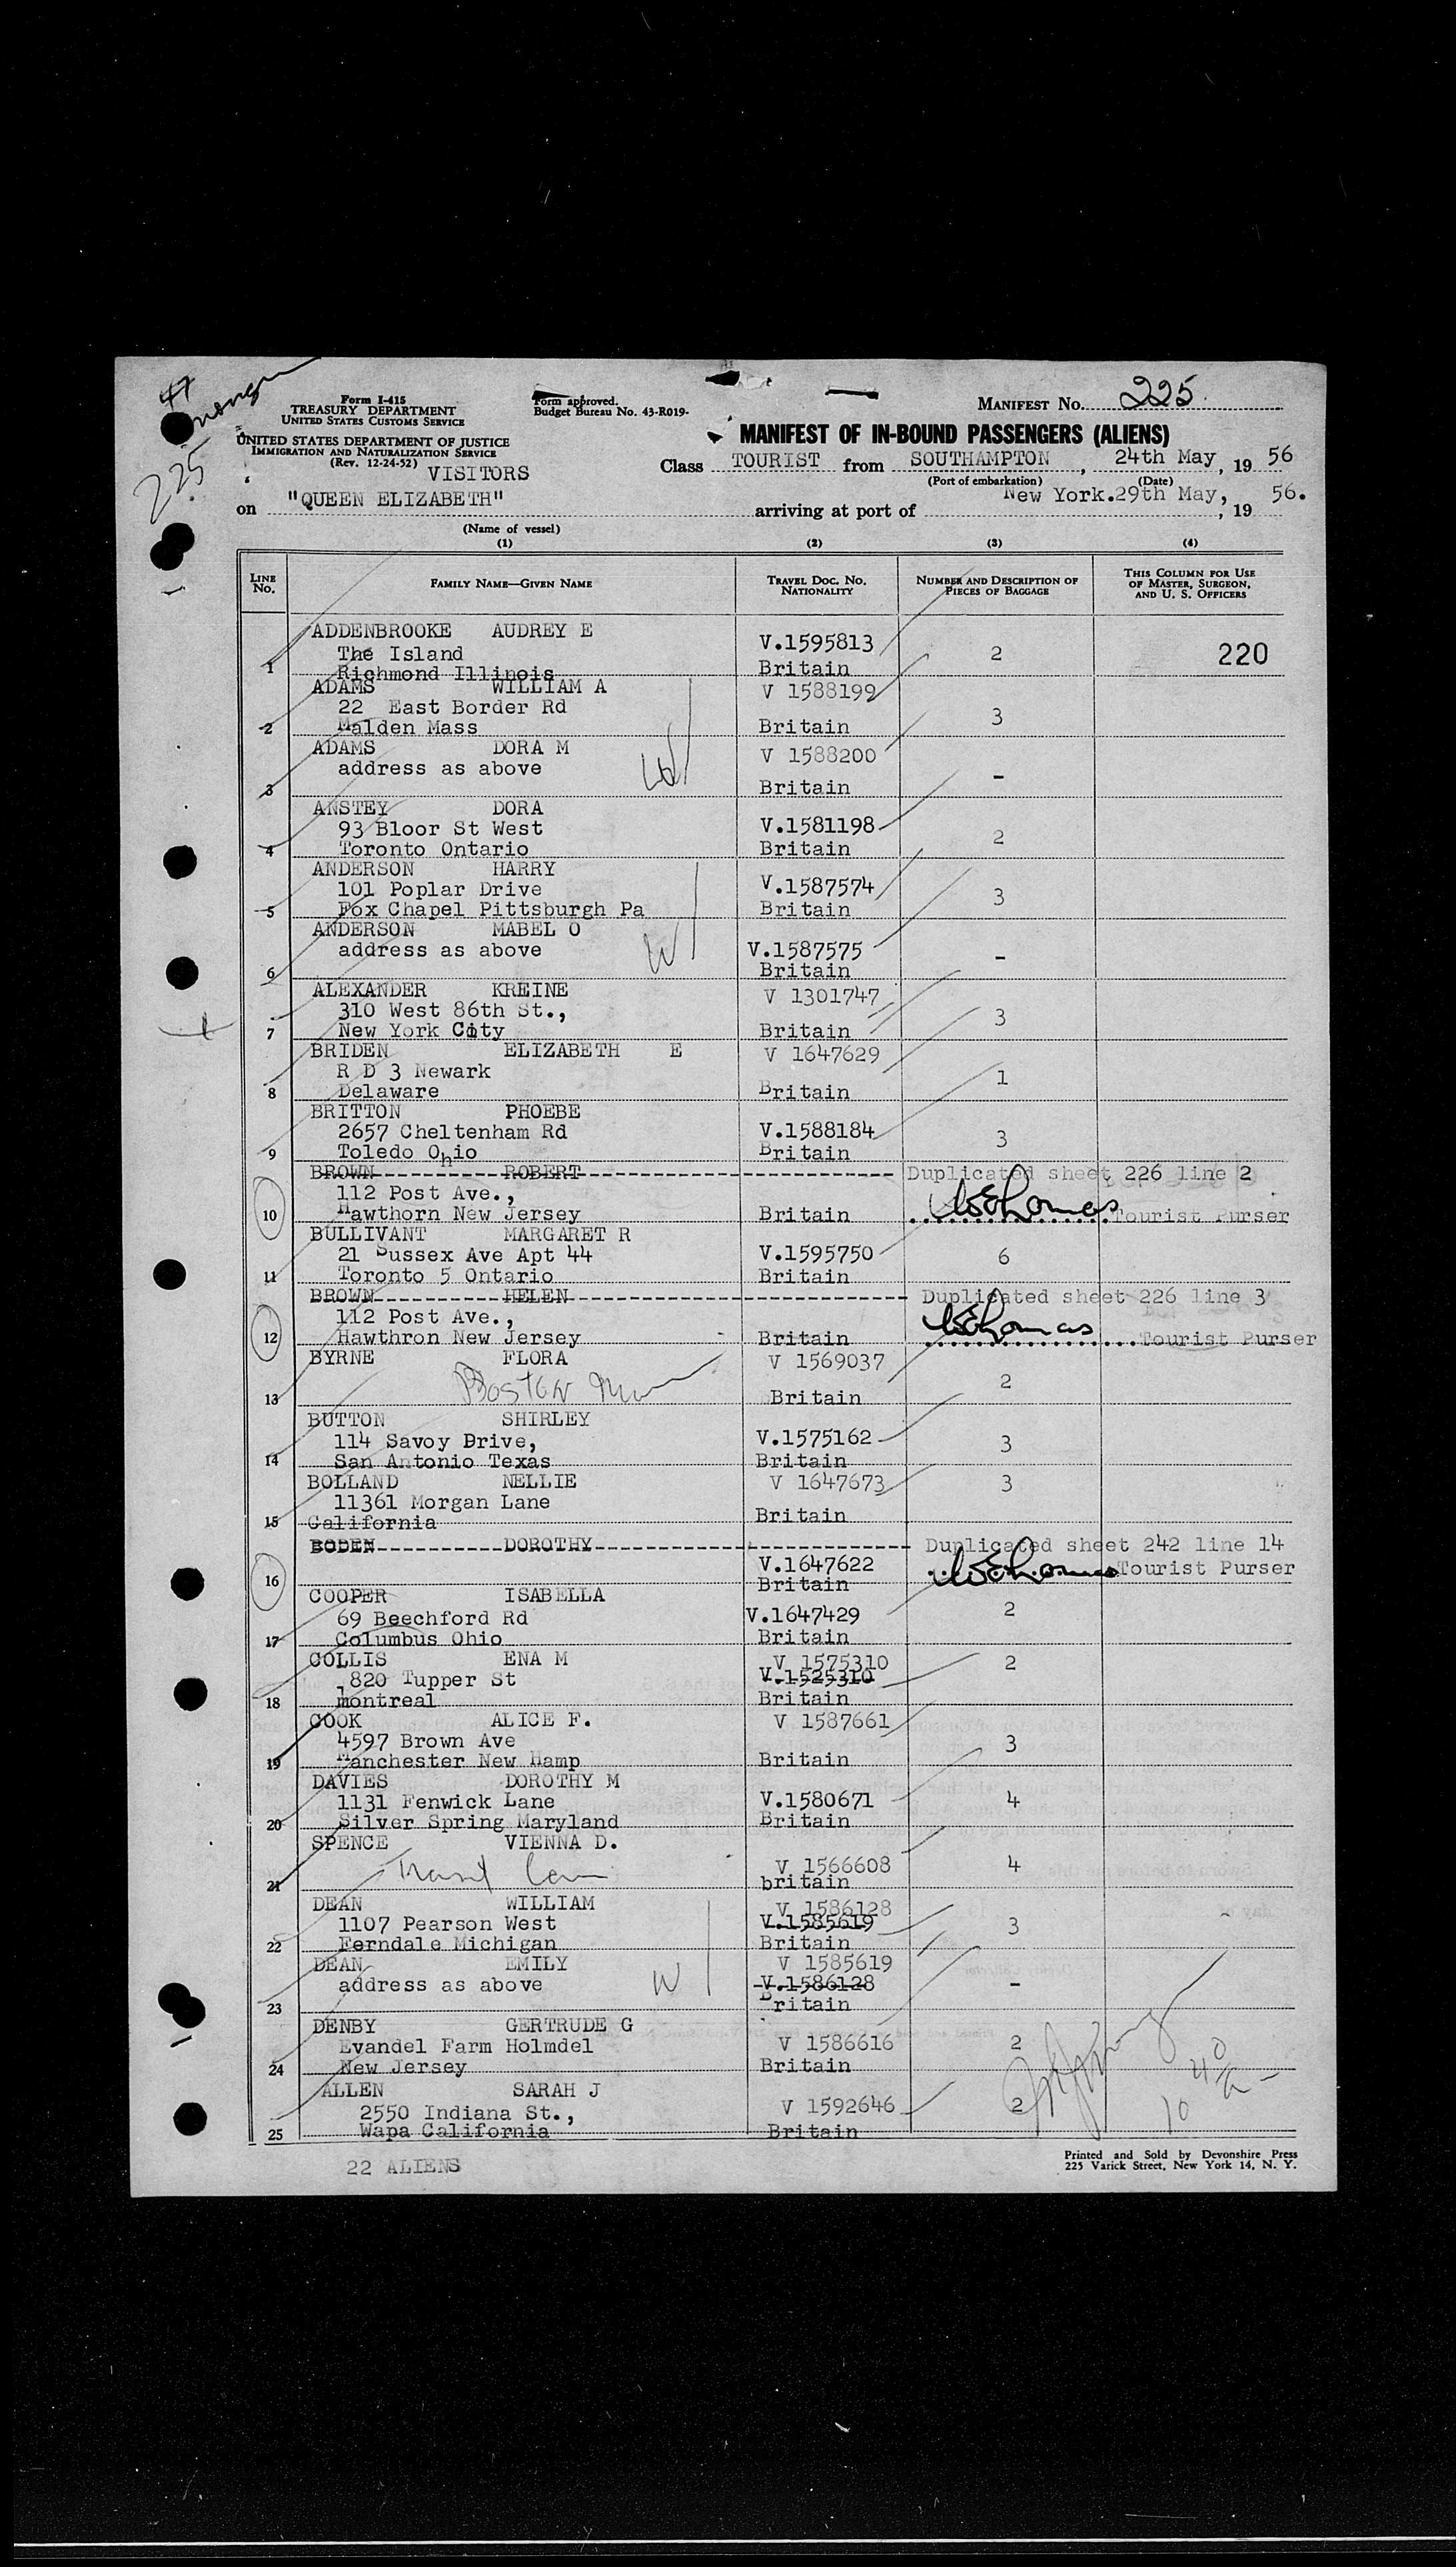 225
Form I-415
TREASURY DEPARTMENT
UNITED STATES CUSTOMS SERVICE
Form approved.
Budget Bureau No. 43-R019-
MANIFEST NO. 225
UNITED STATES DEPARTMENT OF JUSTICE
IMMIGRATION AND NATURALIZATION SERVICE
(Rev. 12-24-52)
VISITORS
MANIFEST OF IN-BOUND PASSENGERS (ALIENS)
Class TOURIST from SOUTHAMPTON, 24th May, 19 56
(Port of embarkation) (Date)
on "QUEEN ELIZABETH" arriving at port of New York. 29th May, , 19 56.
(Name of vessel)
(1) (2) (3) (4)
LINE NO. FAMILY NAME—GIVEN NAME TRAVEL DOC. NO. NATIONALITY NUMBER AND DESCRIPTION OF PIECES OF BAGGAGE THIS COLUMN FOR USE OF MASTER, SURGEON, AND U. S. OFFICERS
ADDENBROOKE AUDREY E V.1595813
The Island 2 220
1 Richmond Illinois Britain
ADAMS WILLIAM A V 1588199
22 East Border Rd 3
2 Malden Mass Britain
ADAMS DORA M V 1588200
address as above -
3 Britain
ANSTEY DORA
93 Bloor St West V.1581198 2
4 Toronto Ontario Britain
ANDERSON HARRY
101 Poplar Drive V.1587574 3
5 Fox Chapel Pittsburgh Pa Britain
ANDERSON MABEL O
address as above V.1587575 -
6 Britain
ALEXANDER KREINE V 1301747
310 West 86th St., 3
7 New York City Britain
BRIDEN ELIZABETH E V 1647629
R D 3 Newark 1
8 Delaware Britain
BRITTON PHOEBE
2657 Cheltenham Rd V.1588184 3
9 Toledo Ohio Britain
BROWN ROBERT Duplicated sheet 226 line 2
112 Post Ave.,
10 Hawthorn New Jersey Britain Tourist Purser
BULLIVANT MARGARET R
21 Sussex Ave Apt 44 V.1595750 6
11 Toronto 5 Ontario Britain
BROWN HELEN Duplicated sheet 226 line 3
112 Post Ave.,
12 Hawthron New Jersey Britain Tourist Purser
BYRNE FLORA V 1569037
Boston 2
13 Britain
BUTTON SHIRLEY
114 Savoy Drive, V.1575162 3
14 San Antonio Texas Britain
BOLLAND NELLIE V 1647673 3
11361 Morgan Lane
15 California Britain
BODEN DOROTHY Duplicated sheet 242 line 14
V.1647622 Tourist Purser
16 Britain
COOPER ISABELLA
69 Beechford Rd V.1647429 2
17 Columbus Ohio Britain
COLLIS ENA M V 1575310 2
820 Tupper St V.1525310
18 montreal Britain
COOK ALICE F. V 1587661
4597 Brown Ave 3
19 Manchester New Hamp Britain
DAVIES DOROTHY M
1131 Fenwick Lane V.1580671 4
20 Silver Spring Maryland Britain
SPENCE VIENNA D.
V 1566608 4
21 britain
DEAN WILLIAM V 1586128
1107 Pearson West V.1585619 3
22 Ferndale Michigan Britain
DEAN EMILY V 1585619
address as above V.1586128 -
23 Britain
DENBY GERTRUDE G
Evandel Farm Holmdel V 1586616 2
24 New Jersey Britain
ALLEN SARAH J
2550 Indiana St., V 1592646 2
25 Wapa California Britain
22 ALIENS
Printed and Sold by Devonshire Press
225 Varick Street, New York 14, N. Y.